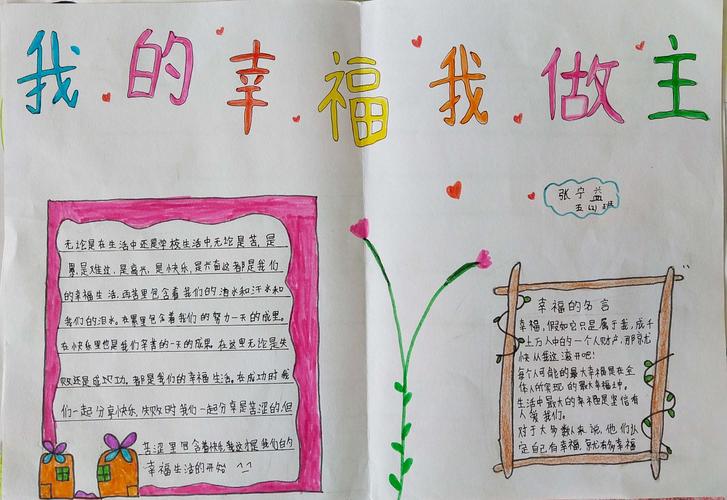 我的幸福我做主
张宁益
五(2)班
无论是在生活中还是学校生活中,无论是苦,是
累,是难过,是高兴,是快乐,是兴奋这都是我们
的幸福生活,而苦里包含着我们的酒水和汗水和
我们的泪水。在累里包含着我们的努力一天的成果。
在快乐里也是我们辛苦的一天的成果。在这里无论是失
败还是成功功,都是我们的幸福生活。在成功时我
们一起分享快乐,失败时我们一起分享是苦涩的,但
苦涩里包含着快乐,我这才是我们的
幸福生活的开始 ^_^
幸福的名言
幸福,假如它只是属于我,成千
上万人中的一个人财产,那就
快从我这滚开吧!
每个人可能的最大幸福是在全
体人所实现的最大幸福之中。
生活中最大的幸福是坚信有
人爱我们。
对于大多数人来说,他们认
定自己有幸福,就有多幸福